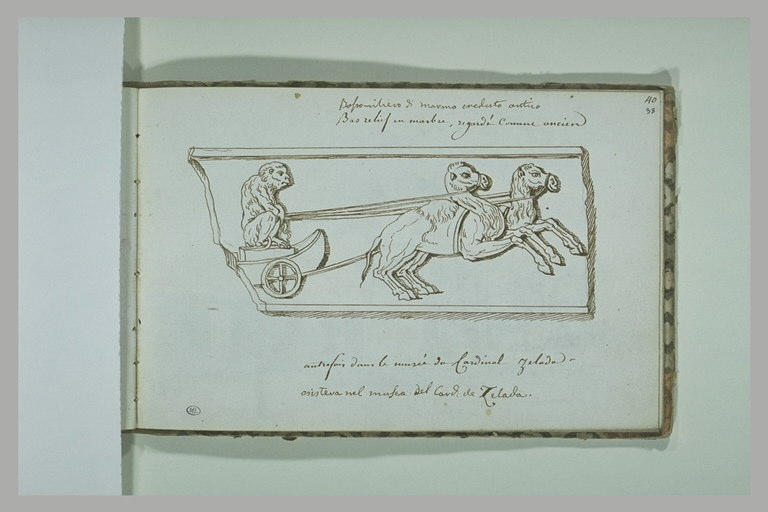 40
38
Bassorilievo di marmo creduto antico
Bas relief en marbre, regardé comme ancien
autrefois dans le musée du Cardinal Zelada
esisteva nel museo del Card. de Zelada.